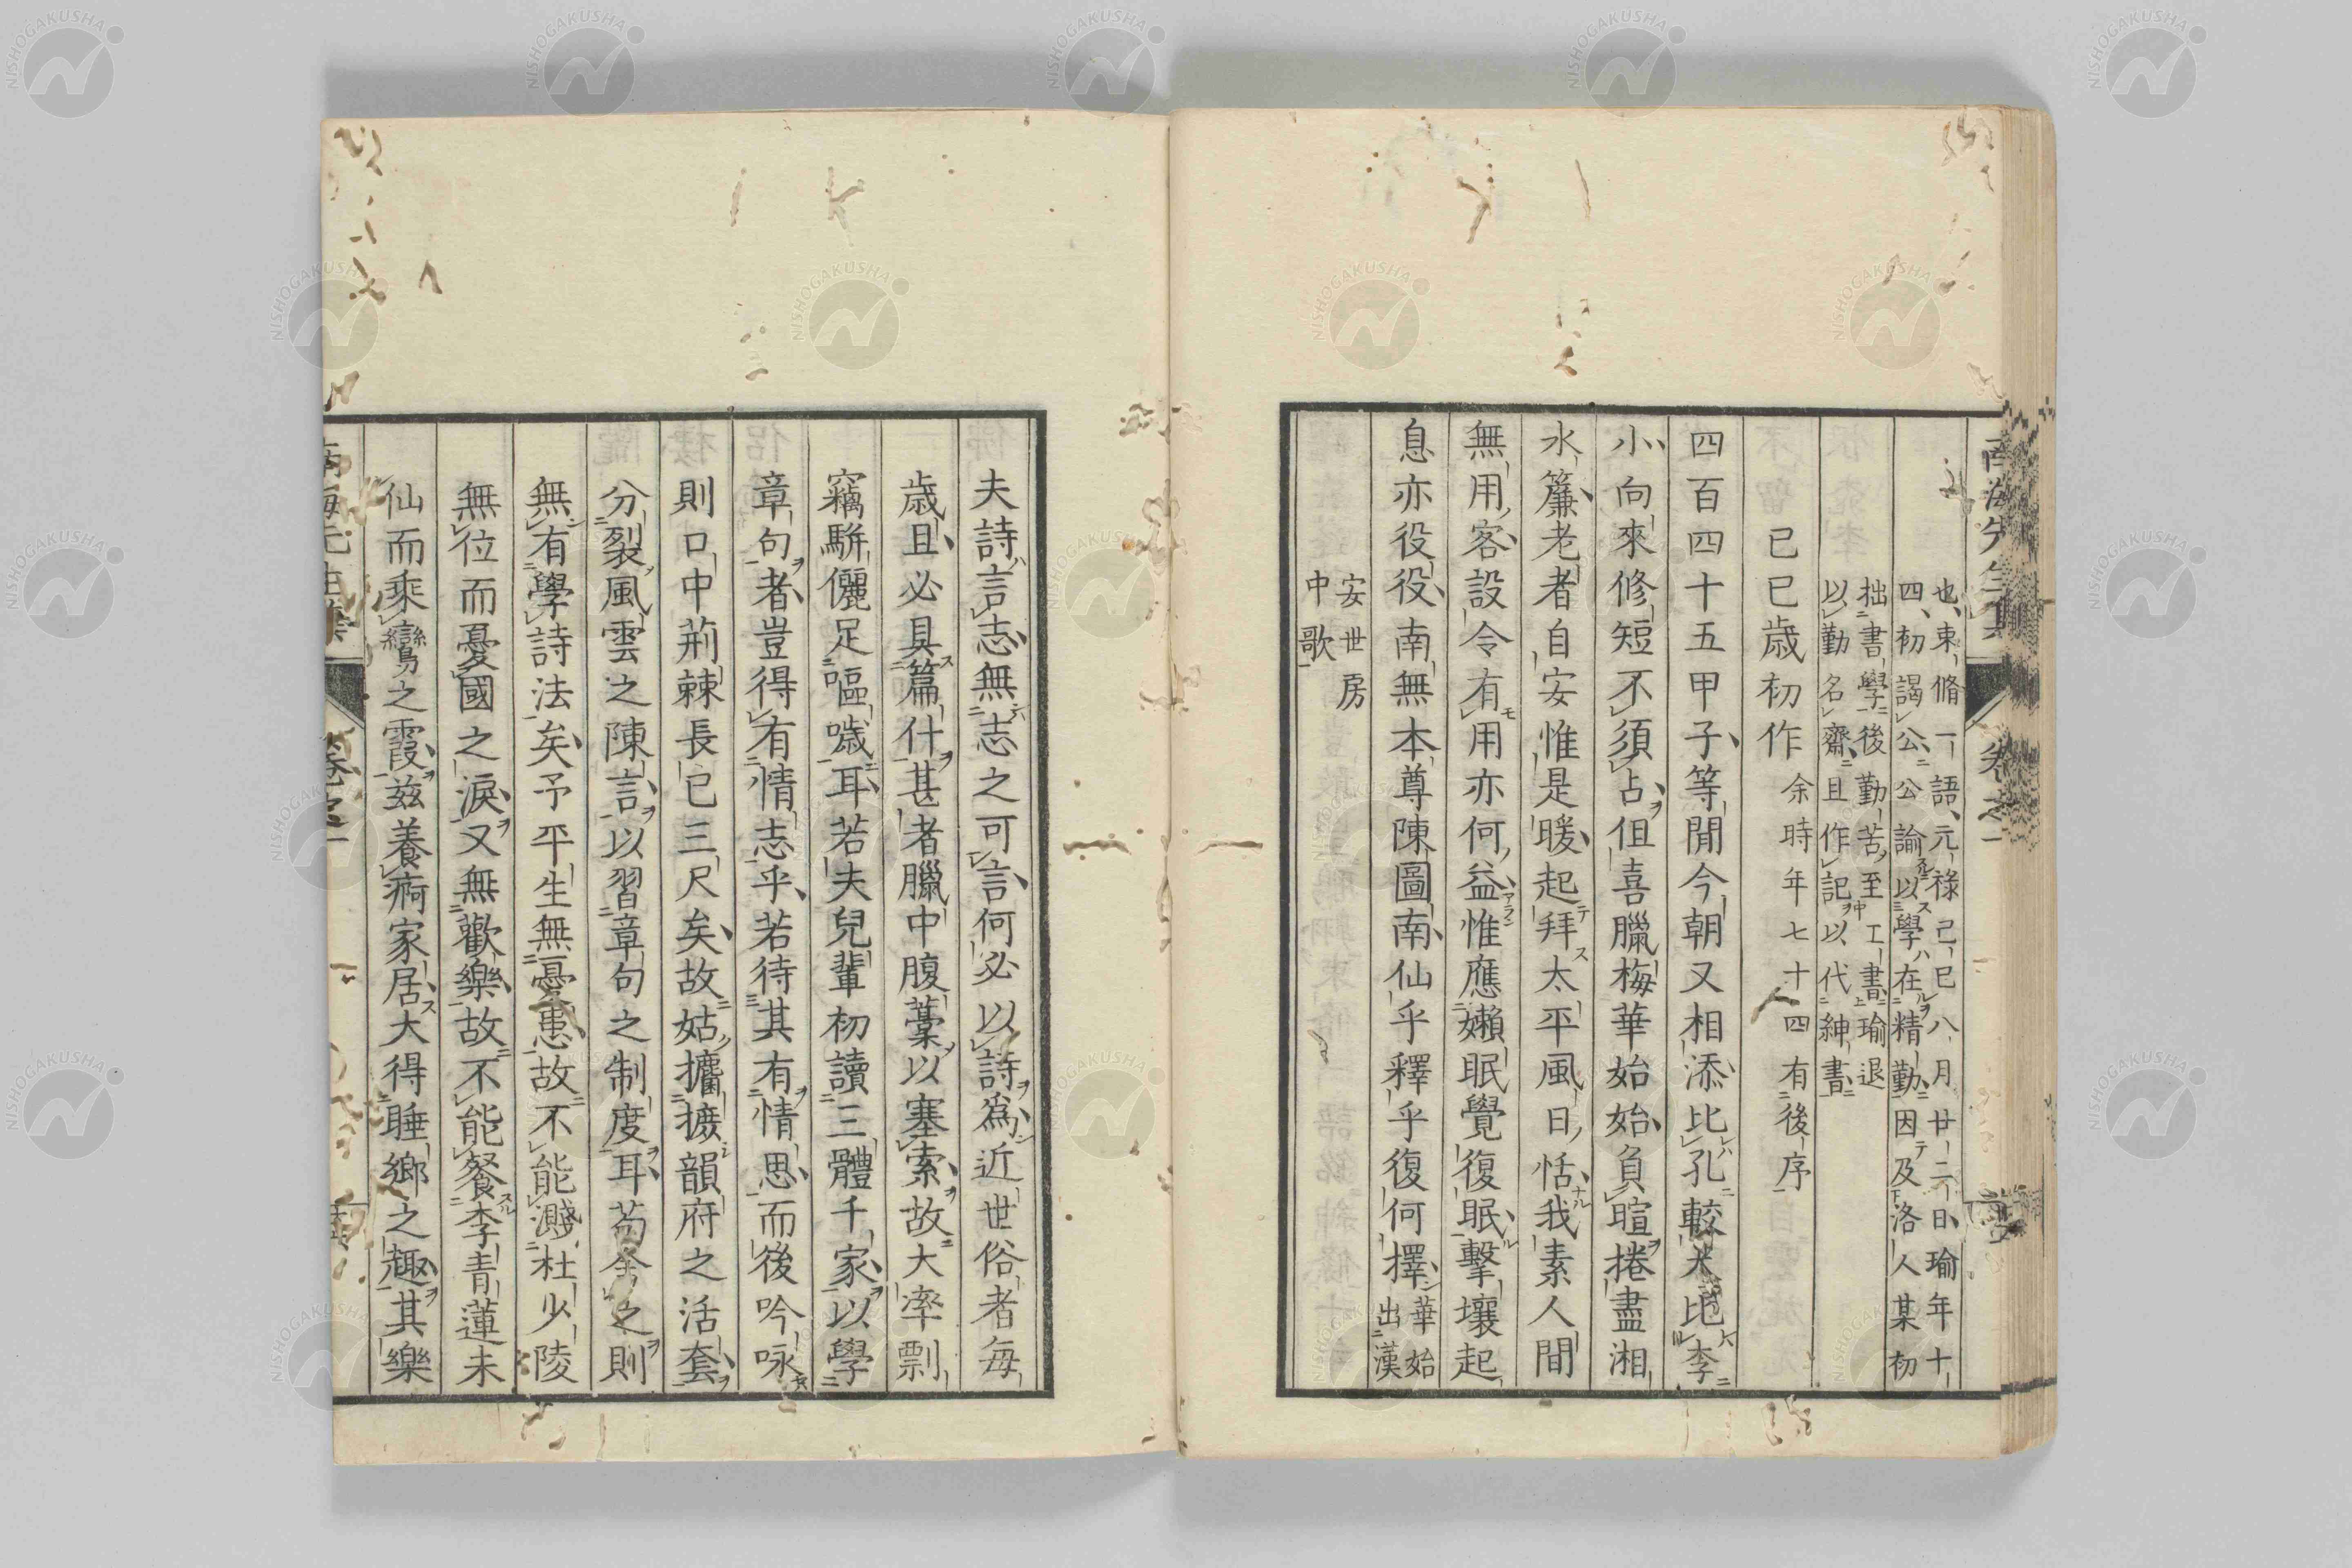 也東脩一語元祿己巳八月廿二日瑜年十
四初謁公公諭以學在精勤因及洛人某初
拙書學後勤苦至工書瑜退
以勤名齋且作記以代紳書
己巳歲初作 余時年七十四有後序
四百四十五甲子等閒今朝又相添比孔較大比李
小向來修短不須占但喜臘梅華始始負暄捲盡湘
水簾老者自安惟是暖起拜太平風日恬我素人間
無用客設令有用亦何益惟應嬾眠覺復眠擊壤起
息亦役役南無本尊陳圖南仙乎釋乎復何擇 華始出漢
安世房
中歌
夫詩言志無志之可言何必以詩爲近世俗者每
歲且必具篇什甚者臘中腹藁以塞索故大率剽
竊駢儷足嘔噦耳若夫兒輩初讀三體千家以學
章句者豈得有情志乎若待其有情思而後吟咏
則口中荊棘長已三尺矣故姑攟摭韻府之活套
分裂風雲之陳言以習章句之制度耳苟舍之則
無有學詩法矣予平生無憂患故不能濺杜少陵
無位而憂國之淚又無歡樂故不能餐李青蓮未
仙而乘鸞之霞茲養痾家居大得睡鄉之趣其樂
南海先生集
卷之一